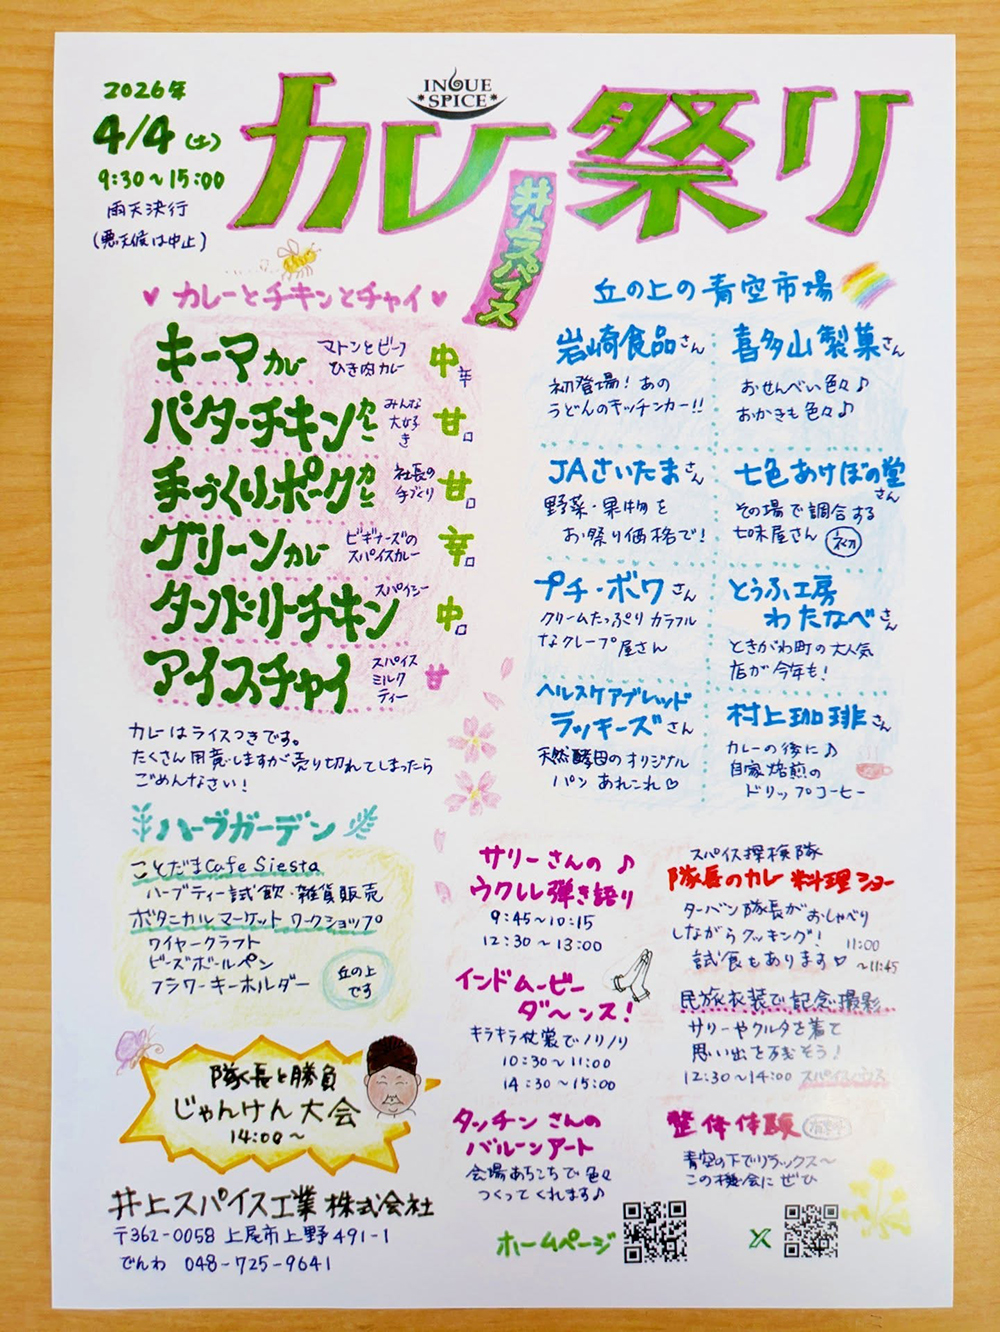 2026年
4/4(土)
9:30～15:00
雨天決行
(悪天候は中止)
INOUE
SPICE
カレー祭り
井上スパイス
♥ カレーとチキンとチャイ ♥
キーマカレー マトンとビーフ
ひき肉カレー 中辛
バターチキンカレー みんな
大好き
甘口
手づくりポークカレー 社長の
手づくり 甘口
グリーンカレー ビギナーズの
スパイスカレー 辛口
タンドリーチキン スパイシー 中口
アイスチャイ スパイス
ミルク
ティー 甘
カレーはライスつきです。
たくさん用意しますが売り切れてしまったら
ごめんなさい!
ハーブガーデン
ことだまCafe Siesta
ハーブティー試飲・雑貨販売
ボタニカルマーケット ワークショップ
ワイヤークラフト
ビーズボールペン
フラワーキーホルダー
丘の上
です
隊長と勝負
じゃんけん大会
14:00～
井上スパイス工業株式会社
〒362-0058 上尾市上野491-1
でんわ 048-725-9641
丘の上の青空市場
岩崎食品さん
初登場!あの
うどんのキッチンカー!!
喜多山製菓さん
おせんべい色々♪
おかきも色々♪
JAさいたまさん
野菜・果物を
お祭り価格で!
七色あけぼの堂さん
その場で調合する
七味屋さん 初
プチ・ボワさん
クリームたっぷりカラフル
なクレープ屋さん
とうふ工房
わたなべさん
ときがわ町の大人気
店が今年も!
ヘルスケアブレッド
ラッキーズさん
天然酵母のオリジナル
パンあれこれ♡
村上珈琲さん
カレーの後に♪
自家焙煎の
ドリップコーヒー
サリーさんの♪
ウクレレ弾き語り
9:45～10:15
12:30～13:00
スパイス探検隊
隊長のカレー料理ショー
ターバン隊長がおしゃべり
しながらクッキング!
試食もあります♡
11:00
～11:45
インドムービー
ダ～ンス!
キラキラ衣裳でノリノリ
10:30～11:00
14:30～15:00
民族衣装で記念撮影
サリーやクルタを着て
思い出を残そう!
12:30～14:00 スパイスハウス
タッチンさんの
バルーンアート
会場あちこちで色々
つくってくれます♪
整体体験
青空の下でリラックス～
この機会にぜひ
ホームページ
X